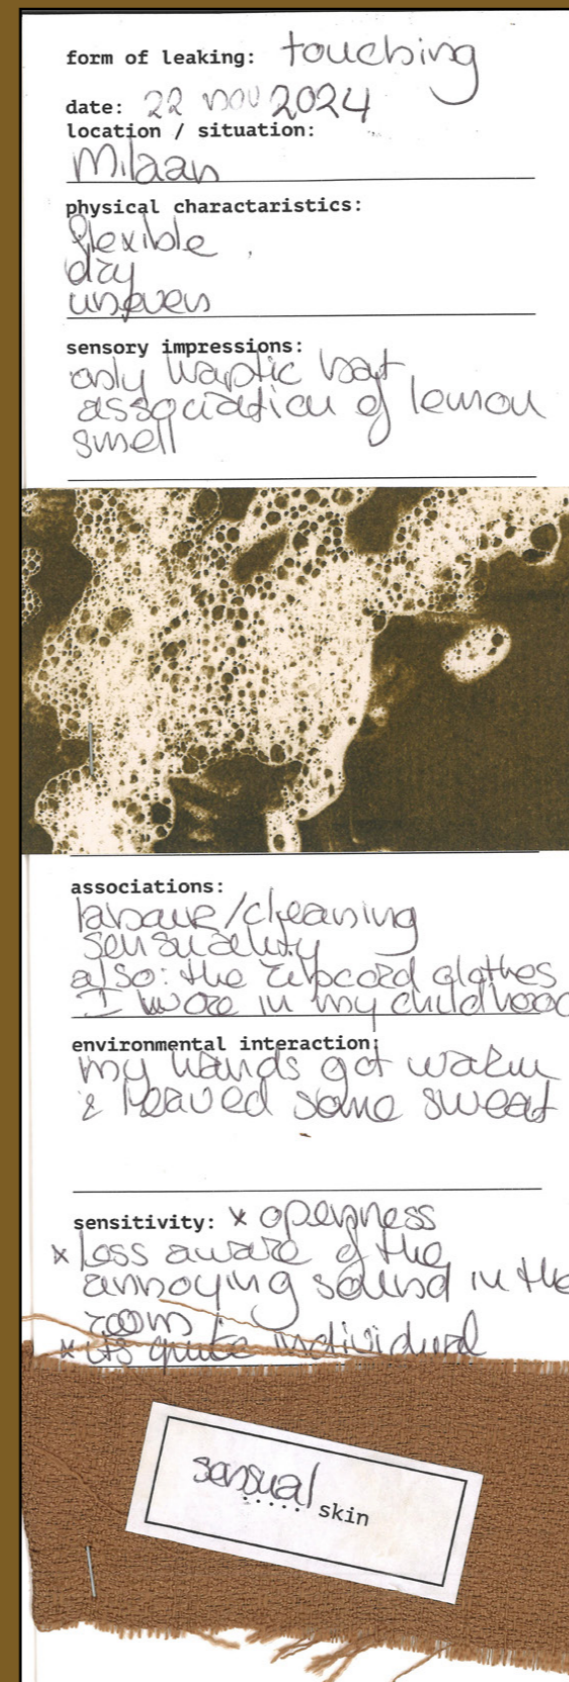 form of leaking: touching
date: 22 nov 2024
location / situation:
Milaan
physical charactaristics:
flexible
dry
uneven
sensory impressions:
only haptic but
association of lemon
smell
associations:
labour/cleaning
sensuality
also: the ribcord clothes
I wore in my childhood
environmental interaction:
my hands got warm
& leaved some sweat
sensitivity: x openness
x less aware of the
annoying sound in the
room
x it's quite individual
sensual
..... skin